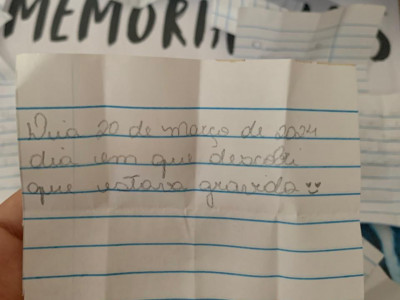 MEMORIA
Dia 20 de março de 2024
dia em que descobri
que estava gravida